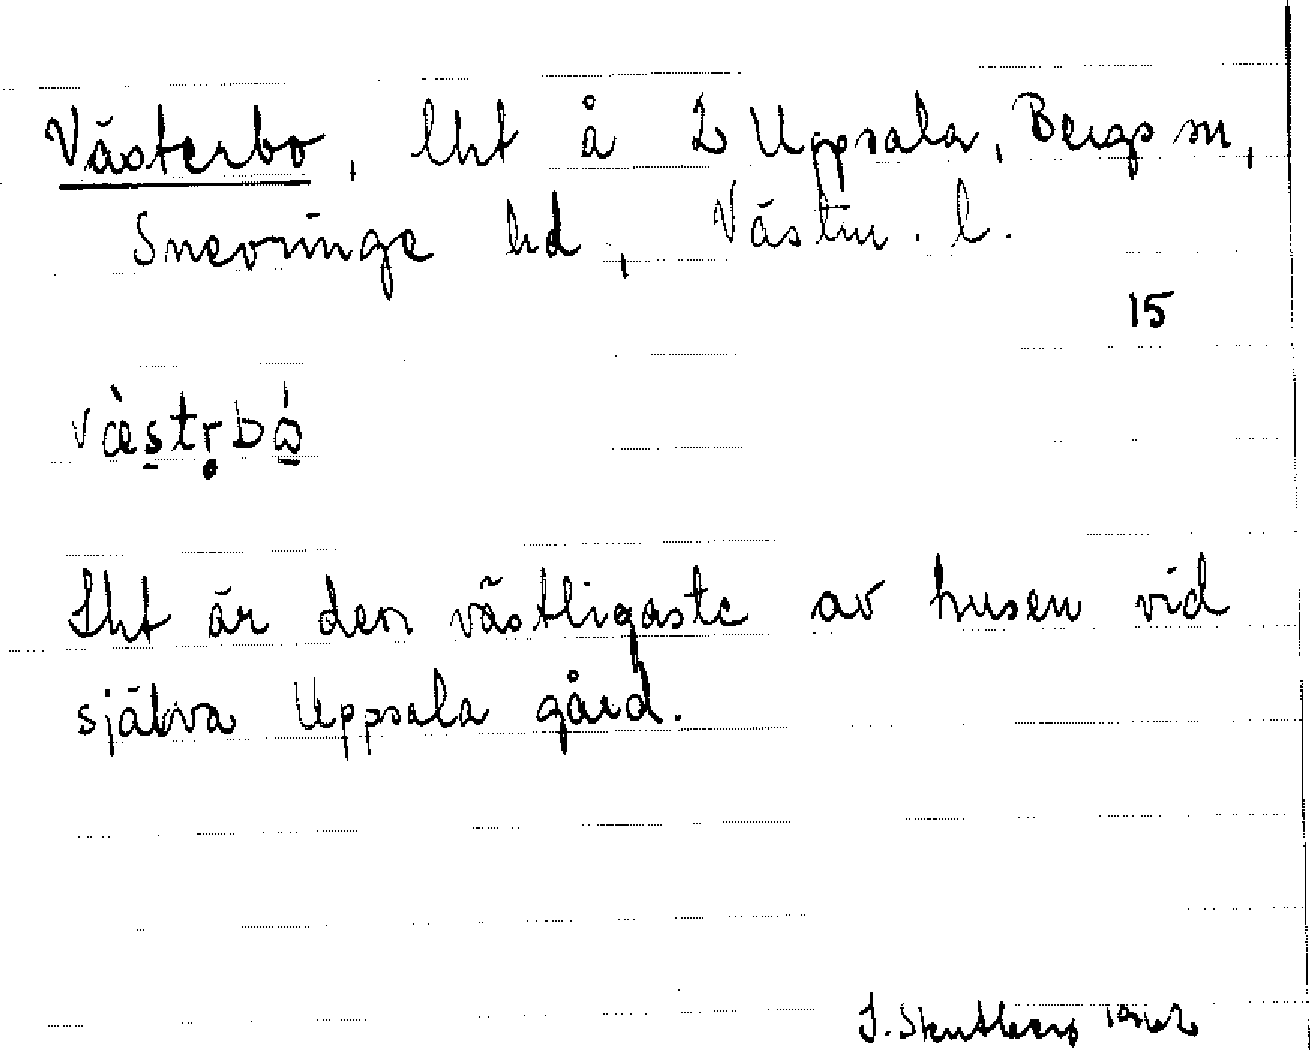 Västerbo, lht å 2 Uppsala, Bergs sn,
Snevringe hd, Västm. l.
15
væ̀str̥bó
Lht är den västligaste av husen vid
själva Uppsala gård.